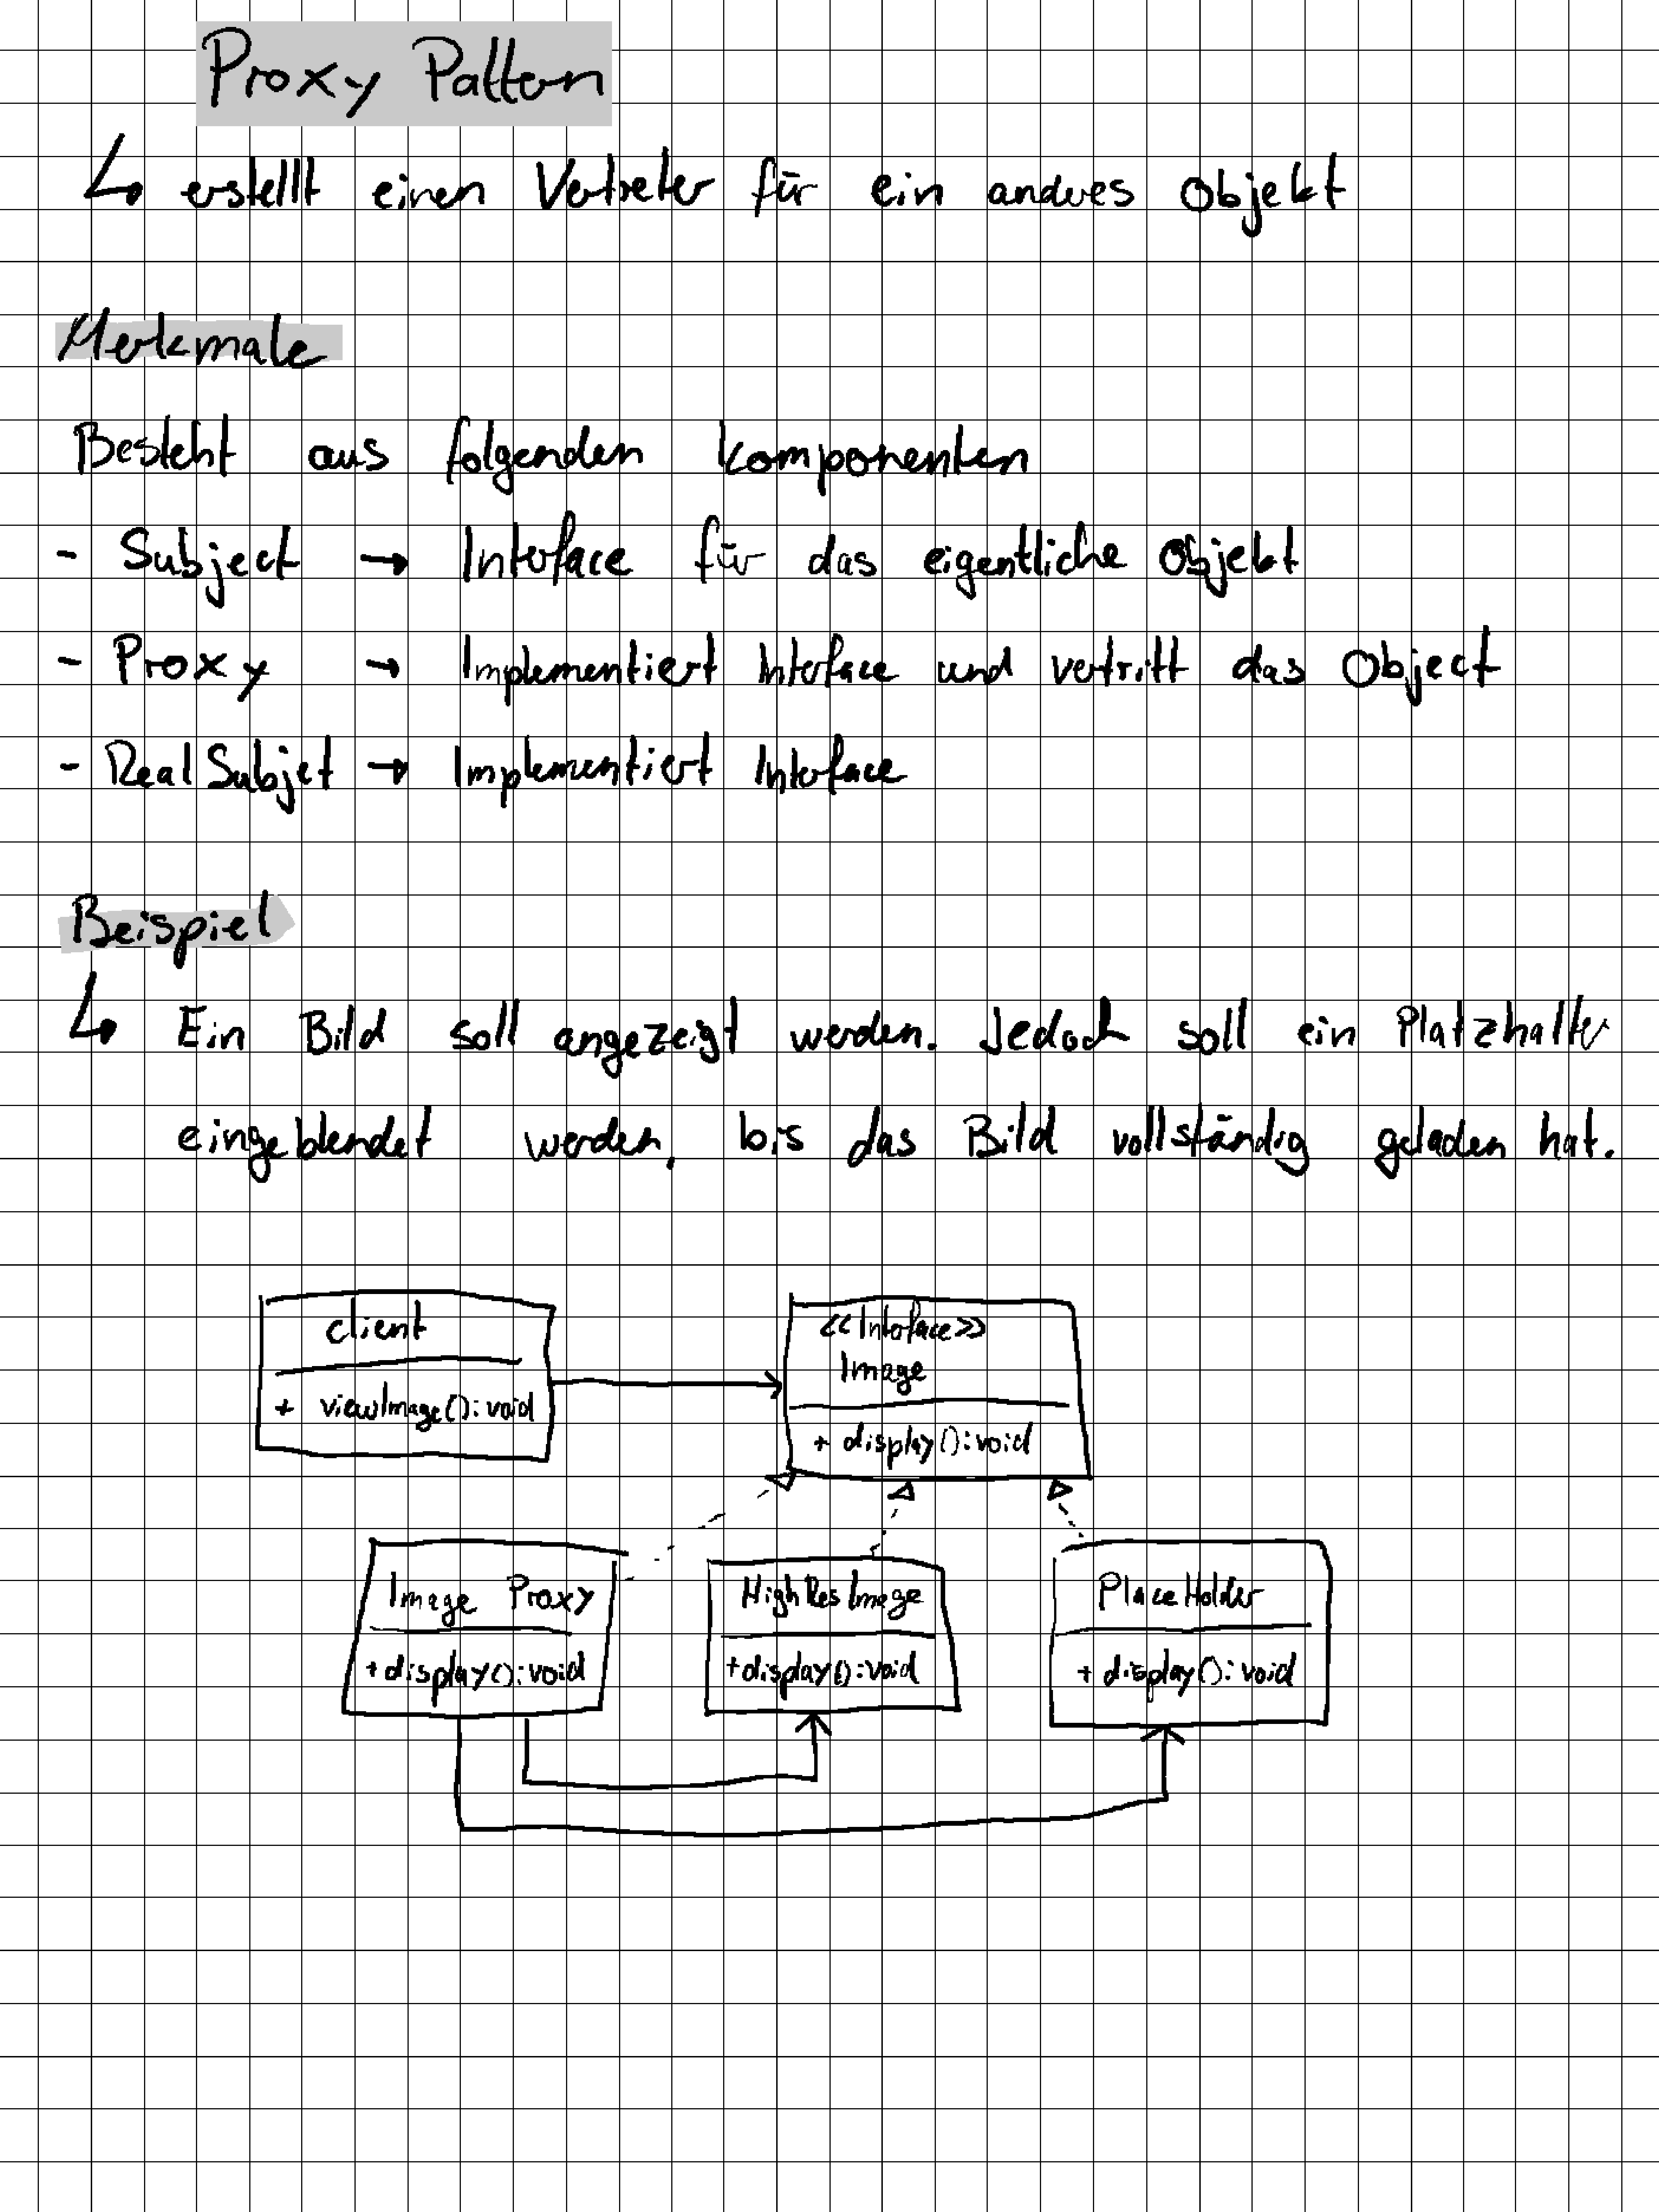 Proxy Pattern
↳ erstellt einen Vertreter für ein anderes Objekt
Merkmale
Besteht aus folgenden Komponenten
- Subject → Interface für das eigentliche Objekt
- Proxy → Implementiert Interface und vertritt das Object
- RealSubjet → Implementiert Interface
Beispiel
↳ Ein Bild soll angezeigt werden. Jedoch soll ein Platzhalter
eingeblendet werden, bis das Bild vollständig geladen hat.
client
+ viewImage(): void
<<Interface>>
Image
+ display(): void
Image Proxy
+ display(): void
HighResImage
+ display(): void
PlaceHolder
+ display(): void